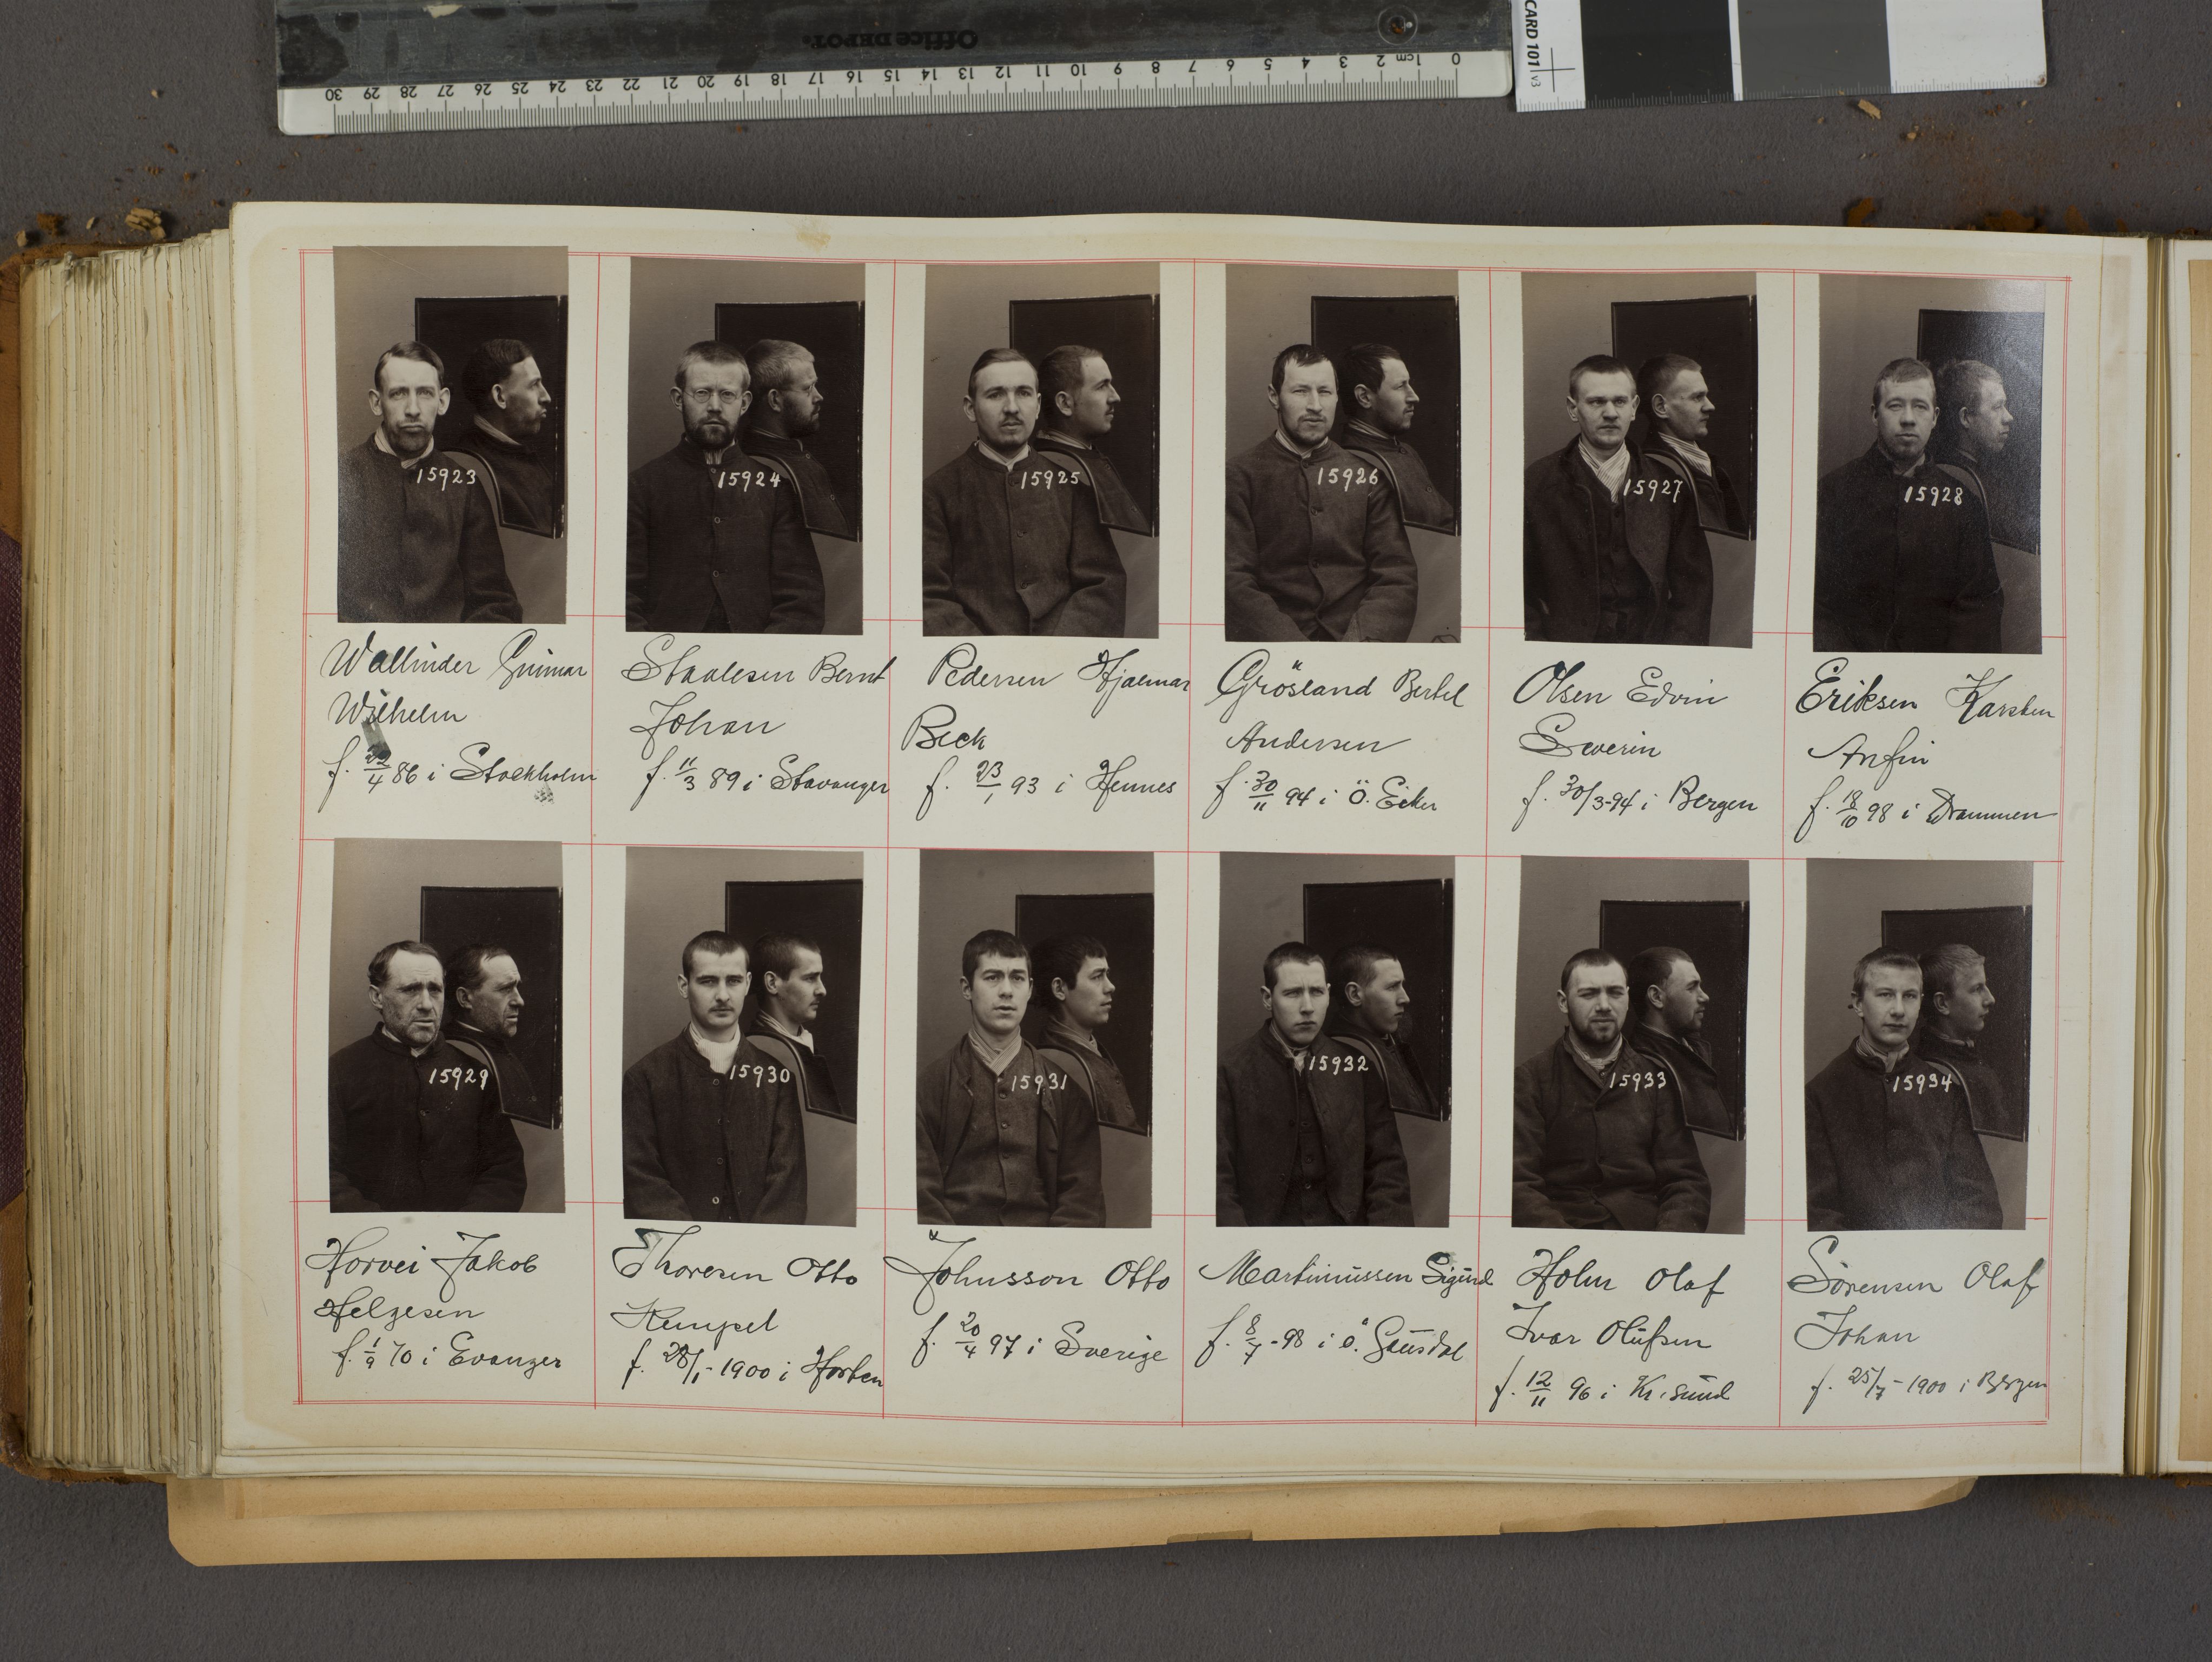 Office DEPOT.
30 29 28 27 26 25 24 23 22 21 20 19 18 17 16 15 14 13 12 11 10 9 8 7 6 5 4 3 2 1cm 0
CARD 101 v3
15923
15924
15925
15926
15927
15928
Wallinder Gunnar
Wilhelm
f. 22/4 86 i Stockholm
Staalesen Bernt
Johan
f. 11/3 89 i Stavanger
Pedersen Hjalmar
Beck
f. 23/1 93 i Hennes
Grösland Bertel
Andersen
f. 30/11 94 i Ö. Eiker
Olsen Edvin
Severin
f. 30/3-94 i Bergen
Eriksen Karsten
Anfin
f. 18/10 98 i Drammen
15929
15930
15931
15932
15933
15934
Horvei Jakob
Helgesen
f. 1/9 70 i Evanger
Thoresen Otto
Kempel
f. 28/1-1900 i Horten
Johnsson Otto
f. 20/4 97 i Sverige
Martinussen Sigurd
f. 8/7-98 i ö. Gausdal
Holm Olaf
Ivar Olufsen
f. 12/11 96 i Kr.sund
Sörensen Olaf
Johan
f. 25/7-1900 i Bergen